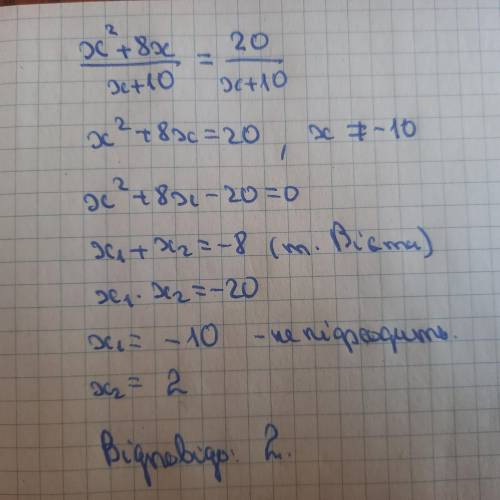 x² + 8x / x+10 = 20 / x+10
x² + 8x = 20 , x ≠ -10
x² + 8x - 20 = 0
x₁ + x₂ = -8 (т. Вієта)
x₁ · x₂ = -20
x₁ = -10 - не підходить.
x₂ = 2
Відповідь: 2.